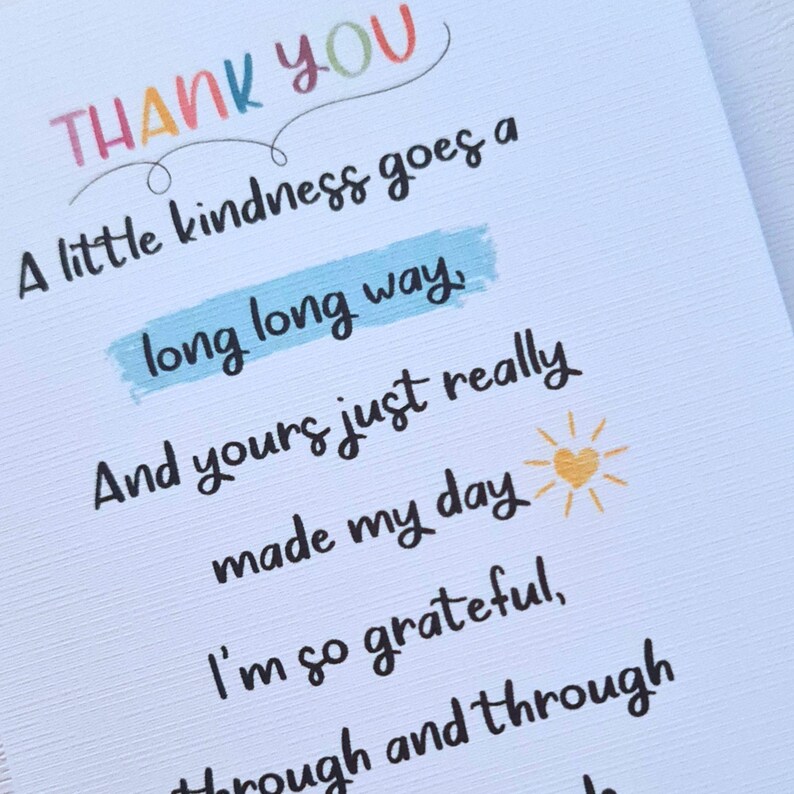 THANK YOU
A little kindness goes a
long long way,
And yours just really
made my day
I'm so grateful,
through and through